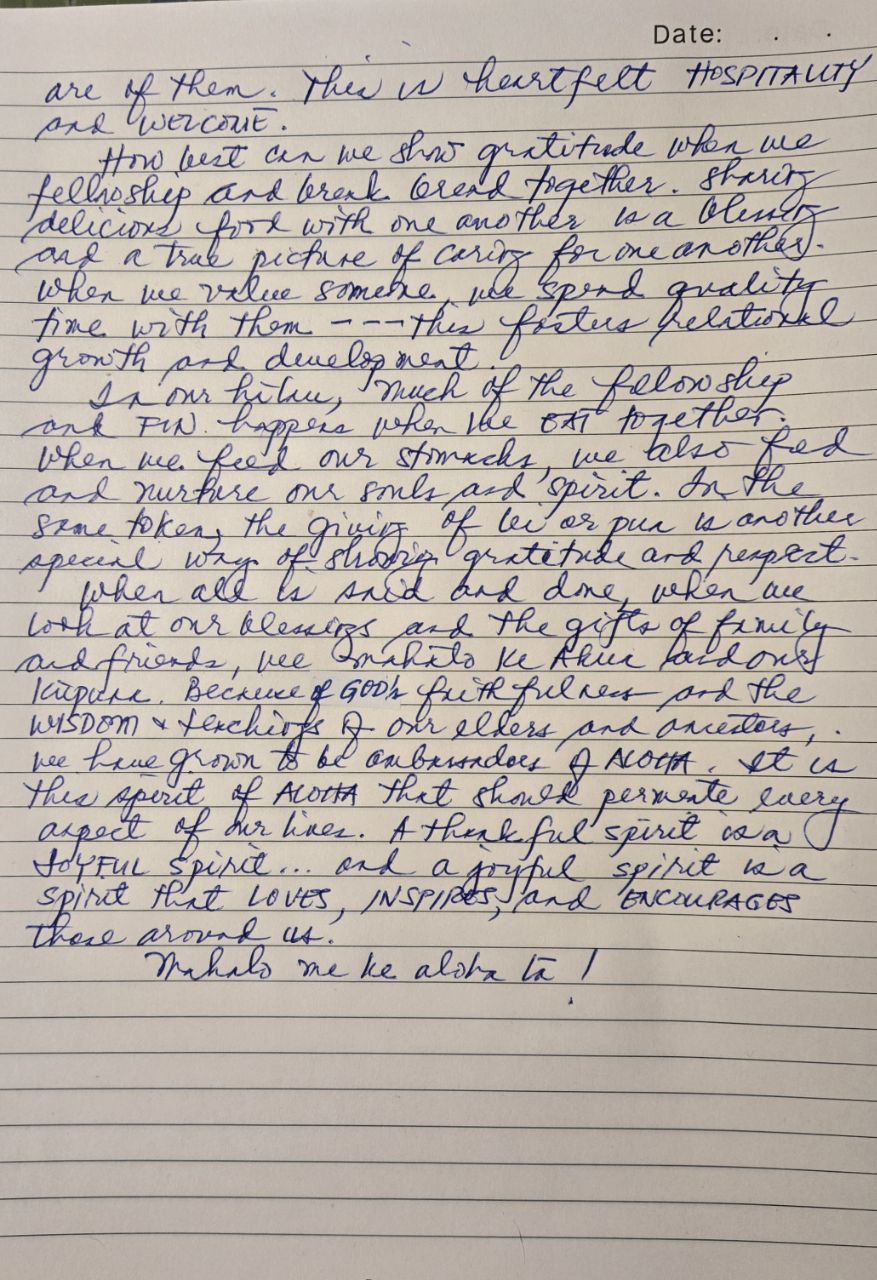 Date: . .
are of them. This is heartfelt HOSPITALITY
and WELCOME.
How best can we show gratitude when we
fellowship and break bread together. Sharing
delicious food with one another is a blessing
and a true picture of caring for one another.
When we value someone, we spend quality
time with them ---- this fosters relational
growth and development.
In our hālau, much of the fellowship
and FUN happens when we EAT together.
When we feed our stomachs, we also feed
and nurture our souls and spirit. In the
same token, the giving of lei or pua is another
special way of showing gratitude and respect.
When all is said and done, when we
look at our blessings and the gifts of family
and friends, we mahalo ke Akua and our
Kūpuna. Because of GOD's faithfulness and the
WISDOM & teachings of our elders and ancestors,
we have grown to be ambassadors of ALOHA. It is
this spirit of ALOHA that should permeate every
aspect of our lives. A thankful spirit is a
JOYFUL spirit... and a joyful spirit is a
spirit that LOVES, INSPIRES, and ENCOURAGES
those around us.
Mahalo me ke aloha